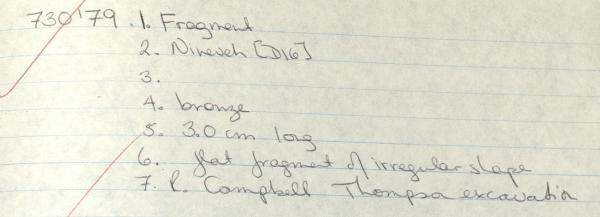 730'79. 1. Fragment
2. Nineveh [D16]
3.
4. bronze
5. 3.0 cm long
6. flat fragment of irregular shape
7. R. Campbell Thompson excavation